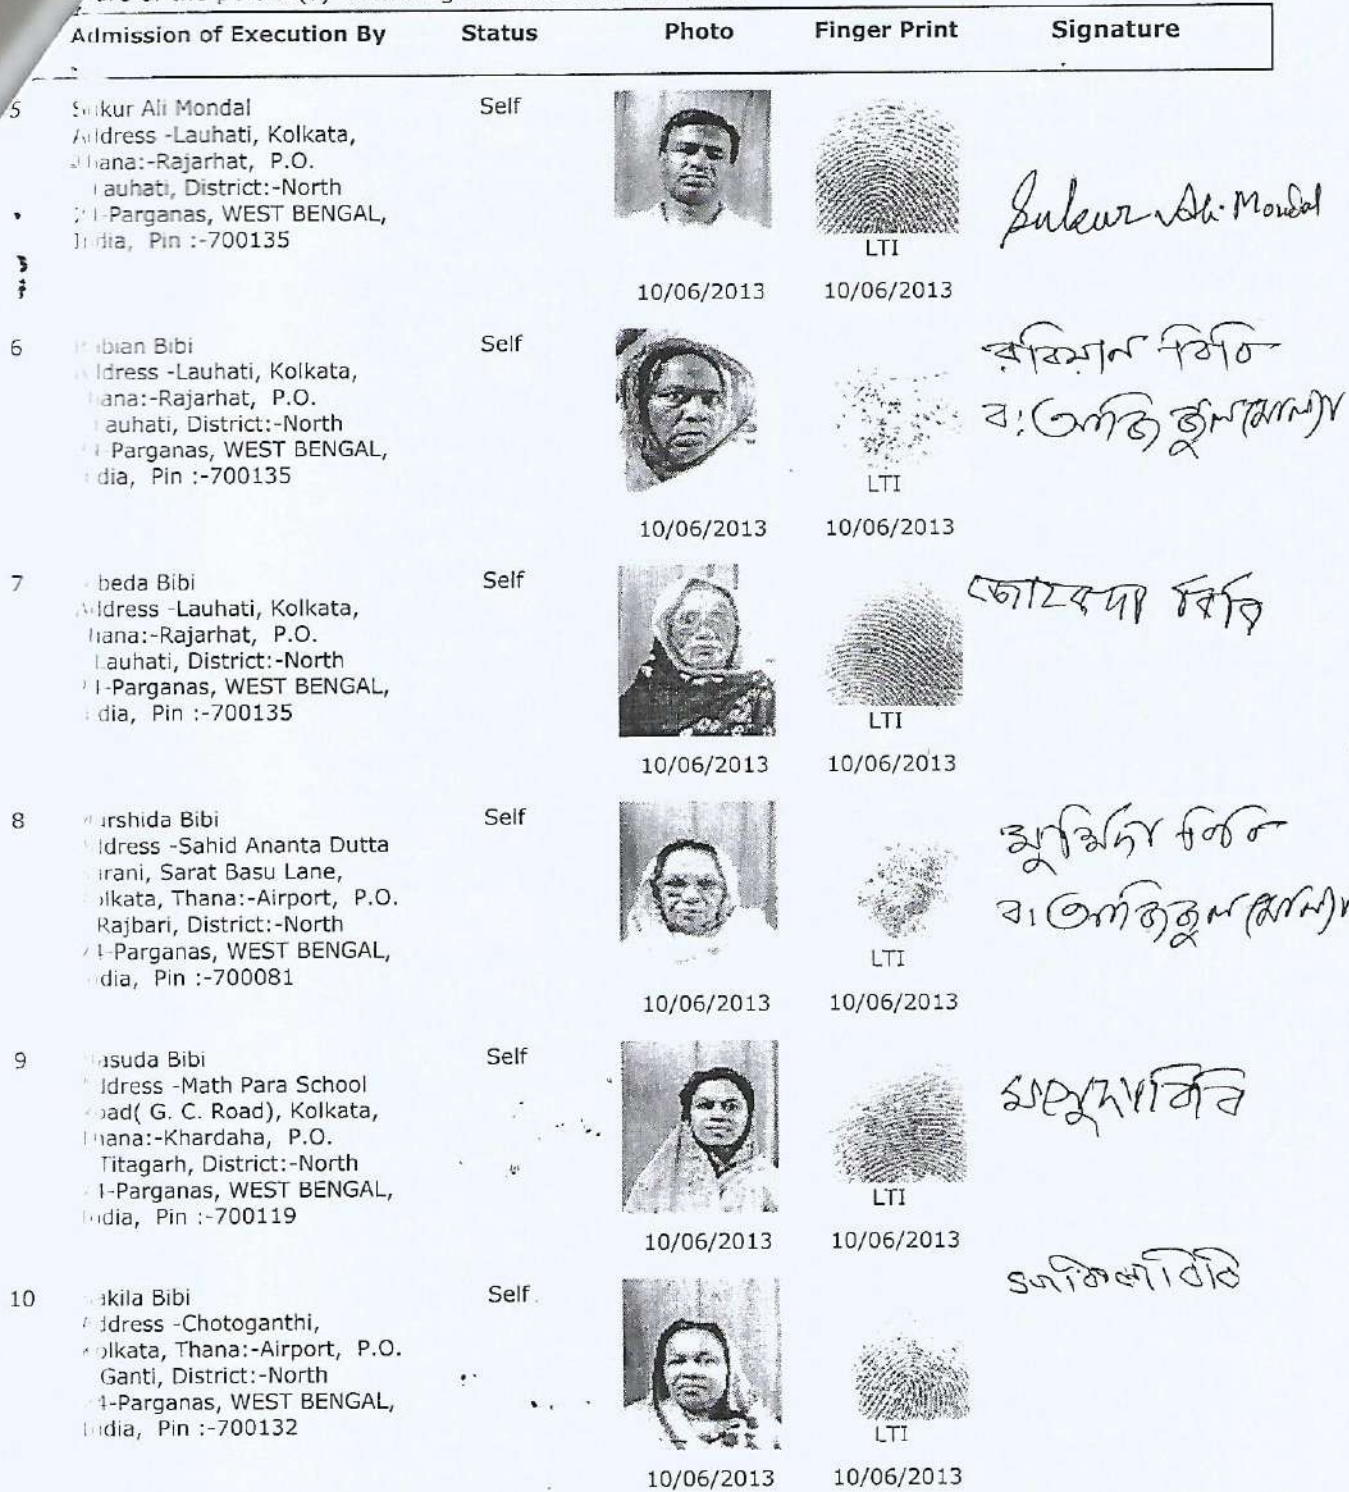 Admission of Execution By Status Photo Finger Print Signature
5 Sukur Ali Mondal Self
Address -Lauhati, Kolkata,
Thana:-Rajarhat, P.O.
Lauhati, District:-North
24-Parganas, WEST BENGAL,
India, Pin :-700135
Sukur Ali Mondal
LTI
10/06/2013 10/06/2013
6 Bibi Self
Address -Lauhati, Kolkata,
Thana:-Rajarhat, P.O.
Lauhati, District:-North
24-Parganas, WEST BENGAL,
India, Pin :-700135
রবিয়ান বিবি
ব:
LTI
10/06/2013 10/06/2013
7 Bibi Self
Address -Lauhati, Kolkata,
Thana:-Rajarhat, P.O.
Lauhati, District:-North
24-Parganas, WEST BENGAL,
India, Pin :-700135
বিবি
LTI
10/06/2013 10/06/2013
8 Murshida Bibi Self
Address -Sahid Ananta Dutta
Sarani, Sarat Basu Lane,
Kolkata, Thana:-Airport, P.O.
Rajbari, District:-North
24-Parganas, WEST BENGAL,
India, Pin :-700081
বিবি
LTI
10/06/2013 10/06/2013
9 Masuda Bibi Self
Address -Math Para School
Road( G. C. Road), Kolkata,
Thana:-Khardaha, P.O.
Titagarh, District:-North
24-Parganas, WEST BENGAL,
India, Pin :-700119
মাসুদা বিবি
LTI
10/06/2013 10/06/2013
10 Sakila Bibi Self
Address -Chotoganthi,
Kolkata, Thana:-Airport, P.O.
Ganti, District:-North
24-Parganas, WEST BENGAL,
India, Pin :-700132
বিবি
LTI
10/06/2013 10/06/2013